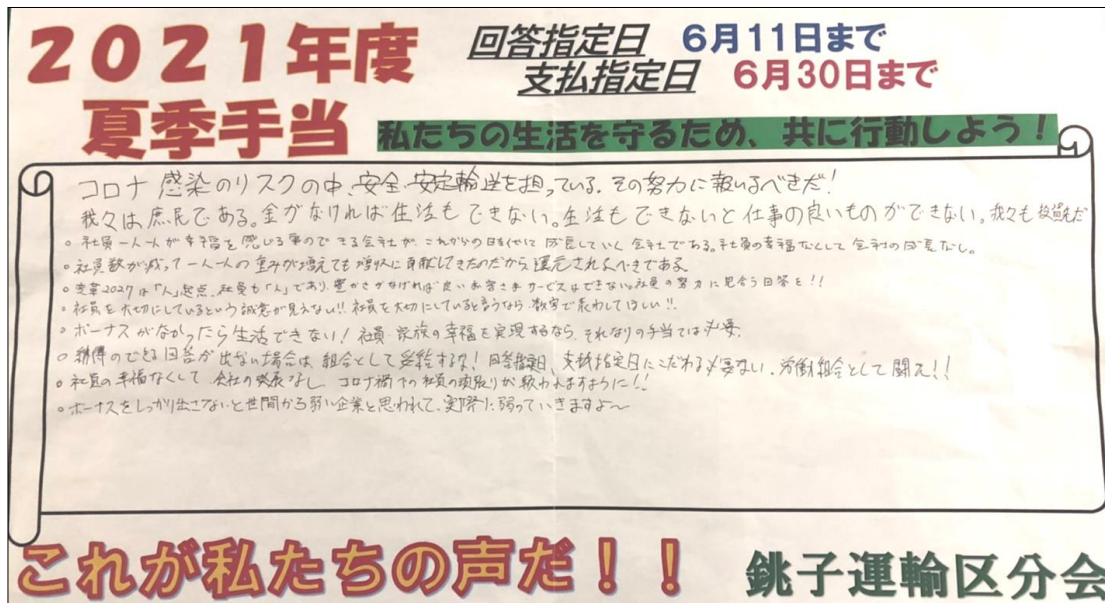 2021年度
夏季手当
回答指定日 6月11日まで
支払指定日 6月30日まで
私たちの生活を守るため、共に行動しよう！
コロナ感染のリスクの中、安全、安定輸送を担っている。その努力に報いるべきだ！
我々は庶民である。金がなければ生活もできない。生活もできないと仕事の良いものができない。我々も投資だ
○社員一人一人が幸福を感じる事のできる会社が、これからの時代に成長していく会社である。社員の幸福なくして会社の成長なし。
○社員数が減って一人一人の重みが増えても増収に貢献してきたのだから還元されるべきである
○変革2027は「人」起点、社員も「人」であり、豊かさがなければ良いお客さまサービスはできない。社員の努力に見合う回答を！！
○社員を大切にしているという誠意が見えない！！社員を大切にしていると言うなら、数字で表わしてほしい！！
○ボーナスがなかったら生活できない！社員・家族の幸福を実現するなら、それなりの手当ては必要。
○納得のできる回答が出ない場合は、組合として妥結するな！回答指定日、支払指定日にこだわる必要ない。労働組合として闘え！！
○社員の幸福なくして会社の発展なし コロナ禍下の社員の頑張りが報われますように！！
○ボーナスをしっかり出さないと世間から弱い企業と思われて、実際に弱っていきますよ～
これが私たちの声だ！！
銚子運輸区分会